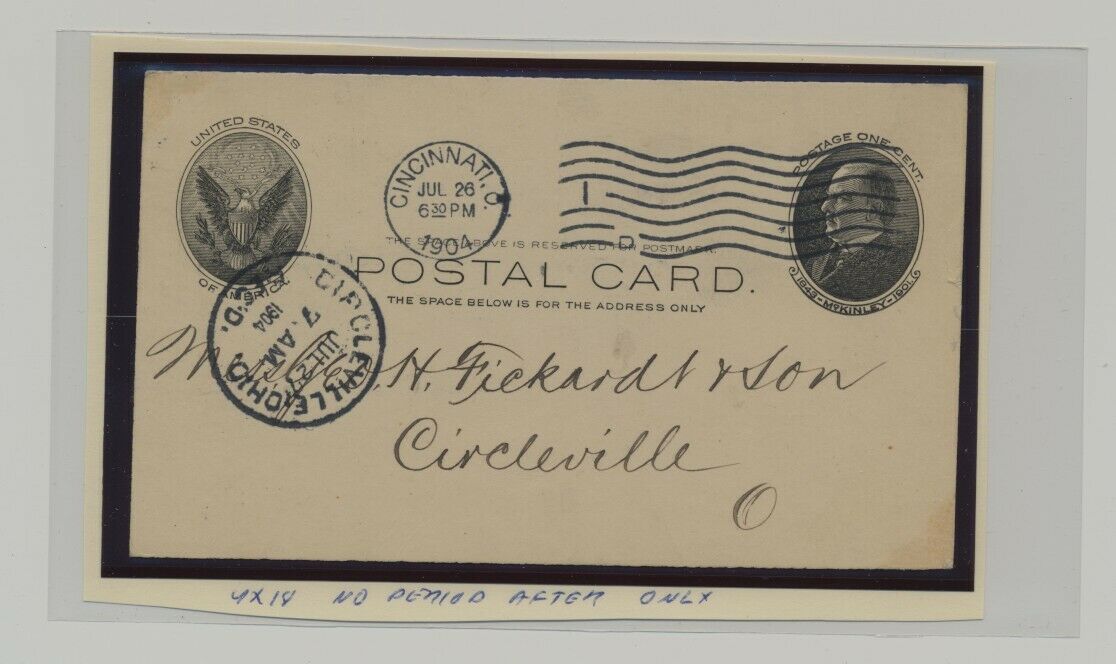 UNITED STATES
OF AMERICA
CINCINNATI, O.
JUL 26
6 30 PM
1904
I
D
POSTAGE ONE CENT.
1843–McKINLEY–1901.
THE SPACE ABOVE IS RESERVED FOR POSTMARK.
POSTAL CARD.
THE SPACE BELOW IS FOR THE ADDRESS ONLY
CIRCLEVILLE, OHIO
7. AM
1904
REC'D.
H. Fickardt & Son
Circleville
O
UX18 NO PERIOD AFTER ONLY